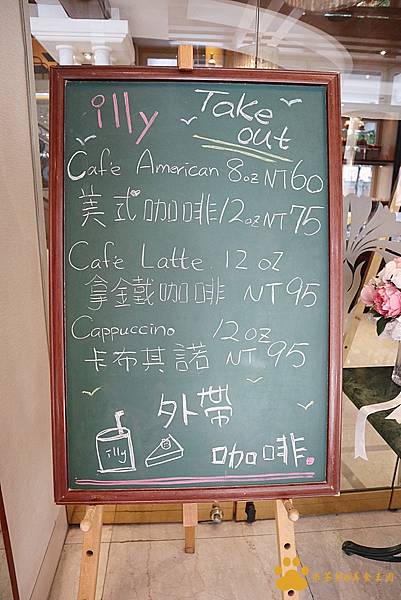 illy Take out
Café American 8oz NT 60
美式咖啡 12oz NT 75
Café Latte 12 oz
拿金鐵咖啡 NT 95
Cappuccino 12 oz
卡布其諾 NT 95
外帶
illy
咖啡.